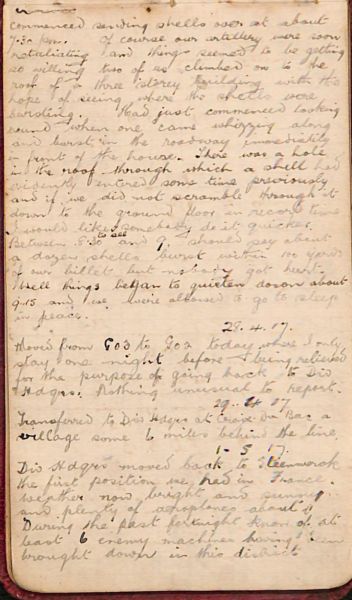 commenced sending shells over at about
7.30 pm. Of course our artillery were soon
retaliating and things seemed to be getting
so willing two of us climbed on to the
roof of a three storey building with the
hope of seeing where the shells were
bursting. Had just commenced looking
round when one came whizzing along
and burst in the roadway immediatily
in front of the house. There was a hole
in the roof through which a shell had
evidently entered some time previously
and if we did not scramble through it
down to the ground floor in record time
I would like to see somebody do it quicker.
Between 8.30 and 9, should say about
a dozen shells burst within 100 yards
of our billet but nobody got hurt.
Well things began to quieten down about
9.15 and we were allowed to go to sleep
in peace.
28.4.17.
Moved from to today where I only
stay one night before being relieved
for the purpose of going back to Div
Hdqrs. Nothing unusual to report.
29.4.17
Transferred to Div Hdqrs at Croix Du Bac a
village some 6 miles behind the line.
1-5.17.
Div Hdqrs moved back to Steenwerck
the first position we had in France.
Weather now bright and sunny
and plenty of aeroplanes about.
During the past fortnight know of at
least 6 enemy machines having been
brought down in this district